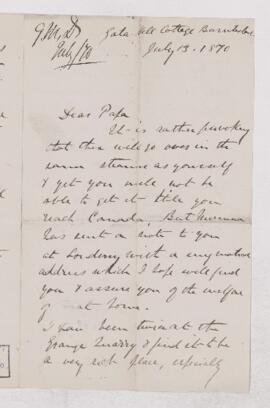 G.M.D.
July/70
Gala Hill Cottage
July 13. 1870
Dear Papa
It is rather provoking
that this will go over in the
same steamer as yourself
& yet you will not be
able to get it till you
reach Canada, But Mamma
has sent a note to you
at Londonderry with
address which I hope will find
you & assure you of the welfare
of at home.
I have been twice at the
Grange Quarry & find it to be
a very rich place, especially